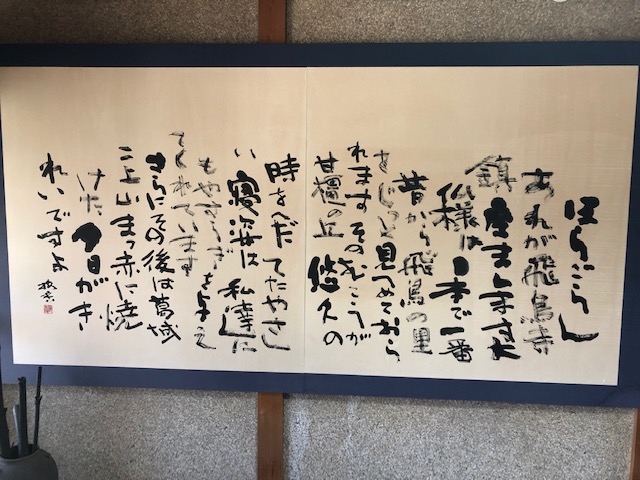 ほらごらん
あれが飛鳥寺
鎮座まします大
仏様は日本で一番
昔から飛鳥の里
をじっと見つめておら
れますそのむこうが
甘橿の丘 悠久の
時をへだてたやさし
い寝姿は私達に
もやすらぎを与え
てくれています
さらにその後は葛城
二上山まっ赤に焼
けた夕日がき
れいですよ